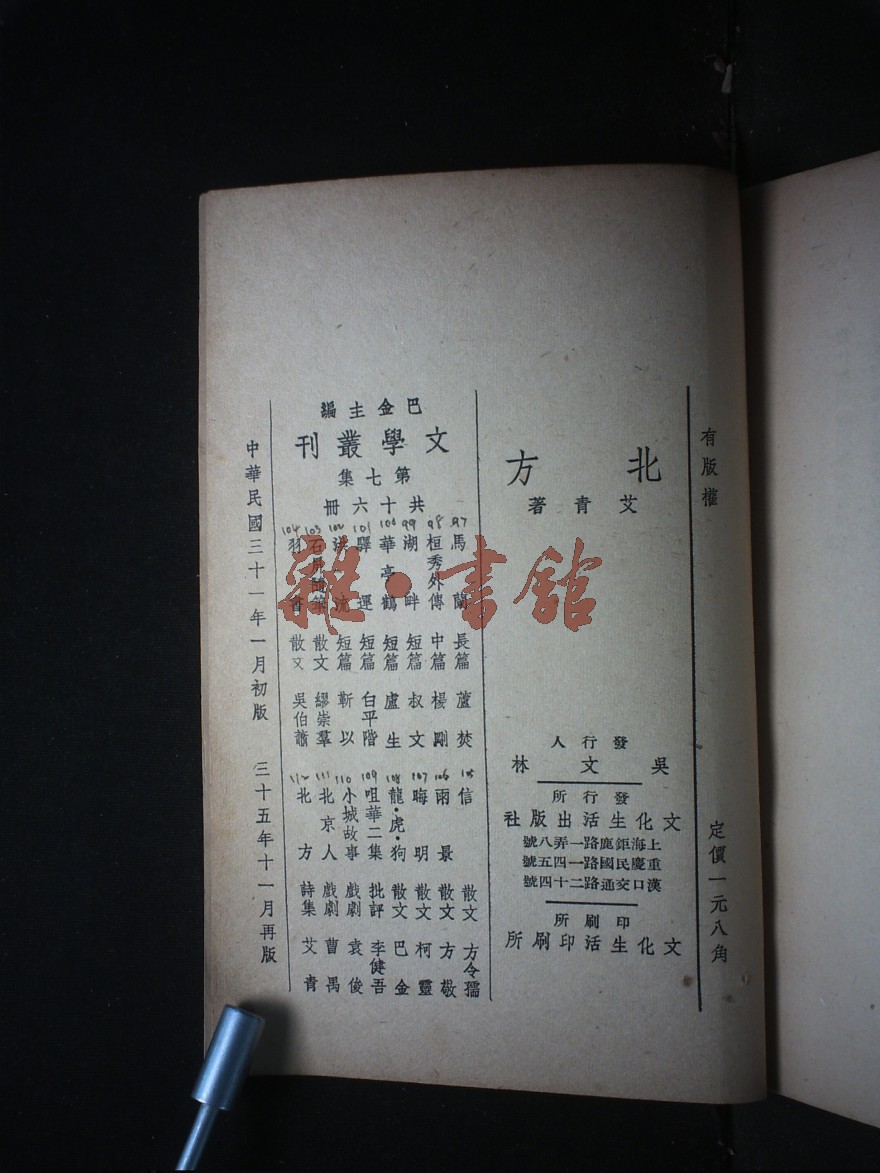 有版權
定價一元八角
北方
艾青著
發行人
吳文林
發行所
文化生活出版社
上海鉅鹿路一弄八號
重慶民國路一四五號
漢口交通路二十四號
印刷所
文化生活印刷所
巴金主編
文學叢刊
第七集
共十六冊
97 馬蘭 長篇 蘆焚
98 桓秀外傳 中篇 楊剛
99 湖畔 短篇 叔文
100 華亭鶴 短篇 盧生
101 驛運 短篇 白平階
102 洪流 短篇 靳以
103 石屏隨筆 散文 繆崇羣
104 羽書 散文 吳伯簫
105 信 散文 方令孺
106 雨景 散文 方敬
107 晦明 散文 柯靈
108 龍·虎·狗 散文 巴金
109 咀華二集 批評 李健吾
110 小城故事 戲劇 袁俊
111 北京人 戲劇 曹禺
112 北方 詩集 艾青
中華民國三十一年一月初版 三十五年十一月再版
雜·書館